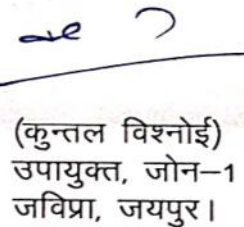 (कुन्तल विश्नोई)
उपायुक्त, जोन–1
जविप्रा, जयपुर।